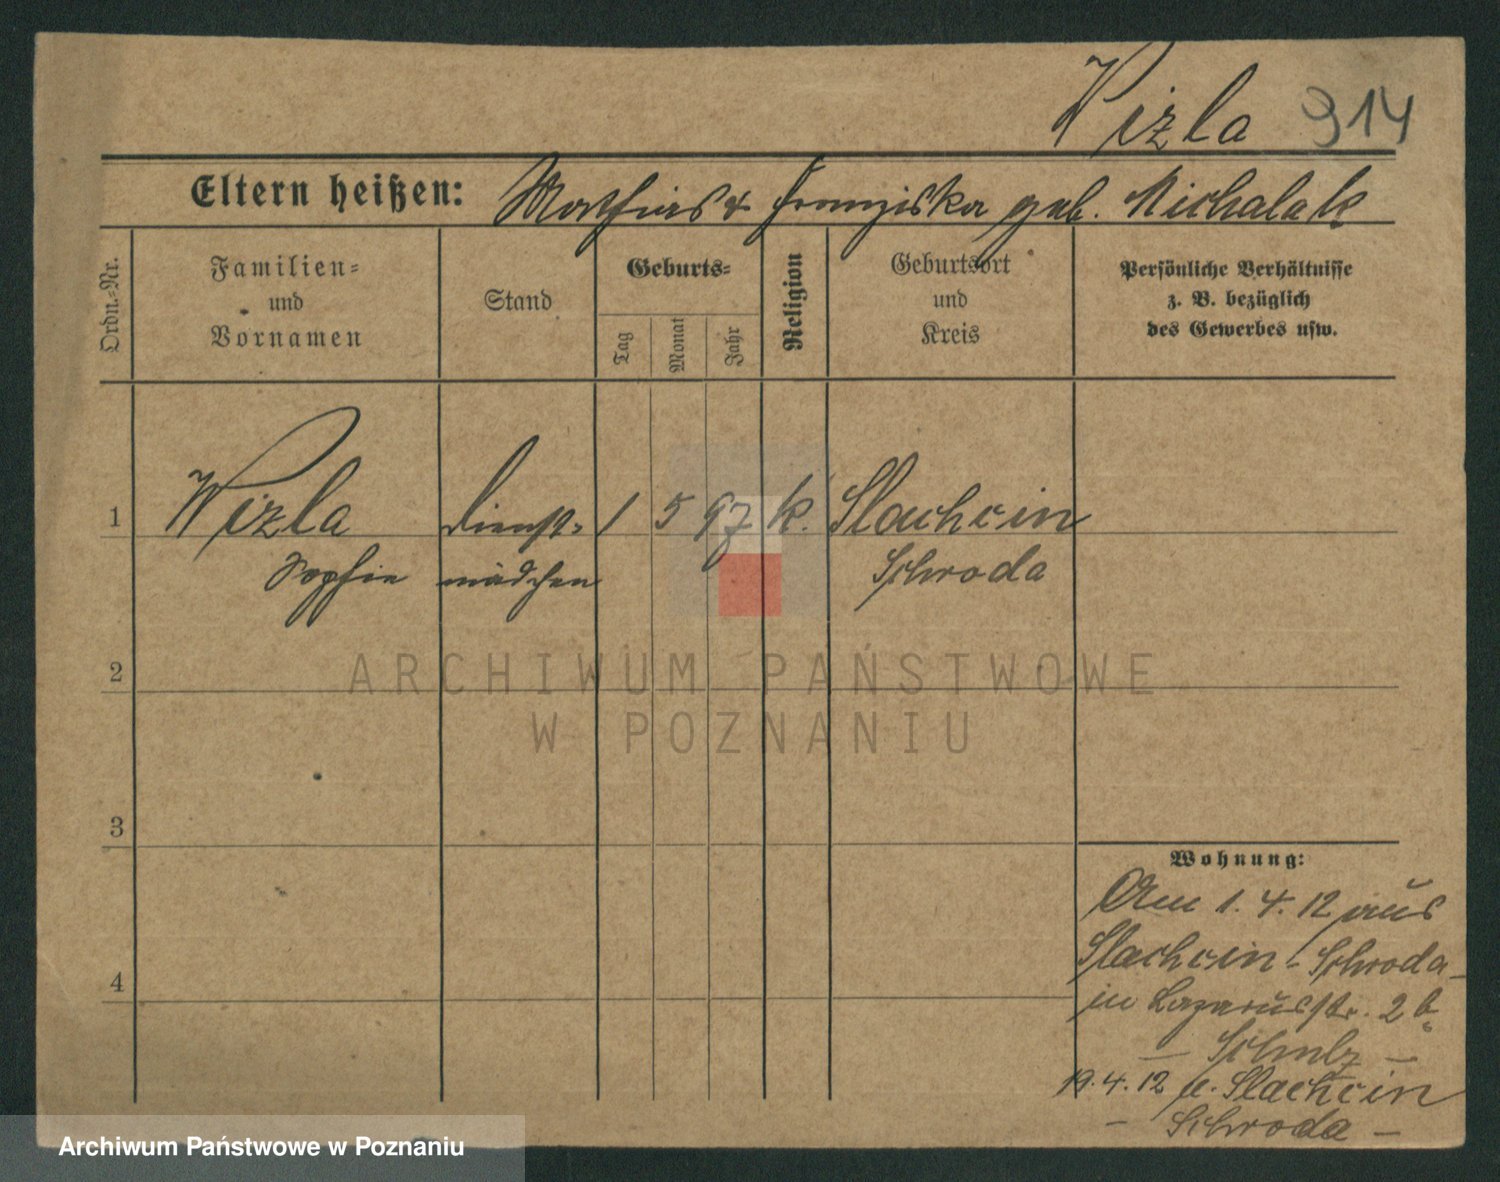 Wizla 914
Eltern heißen: Mathias & Franziska geb. Michalak
Ordn.-Nr.
Familien- und Vornamen
Stand
Geburts-
Tag
Monat
Jahr
Religion
Geburtsort und Kreis
Persönliche Verhältnisse
z. B. bezüglich
des Gewerbes usw.
1 Wizla Dienst- 1 5 97 k. Slachcin
Sophie mädchen Schroda
2
ARCHIWUM PAŃSTWOWE
W POZNANIU
3
Wohnung:
Am 1.4.12 aus
Slachcin - Schroda
4
in Lazarusstr. 2b
— Schulz —
19.4.12 n. Slachcin
— Schroda —
Archiwum Państwowe w Poznaniu